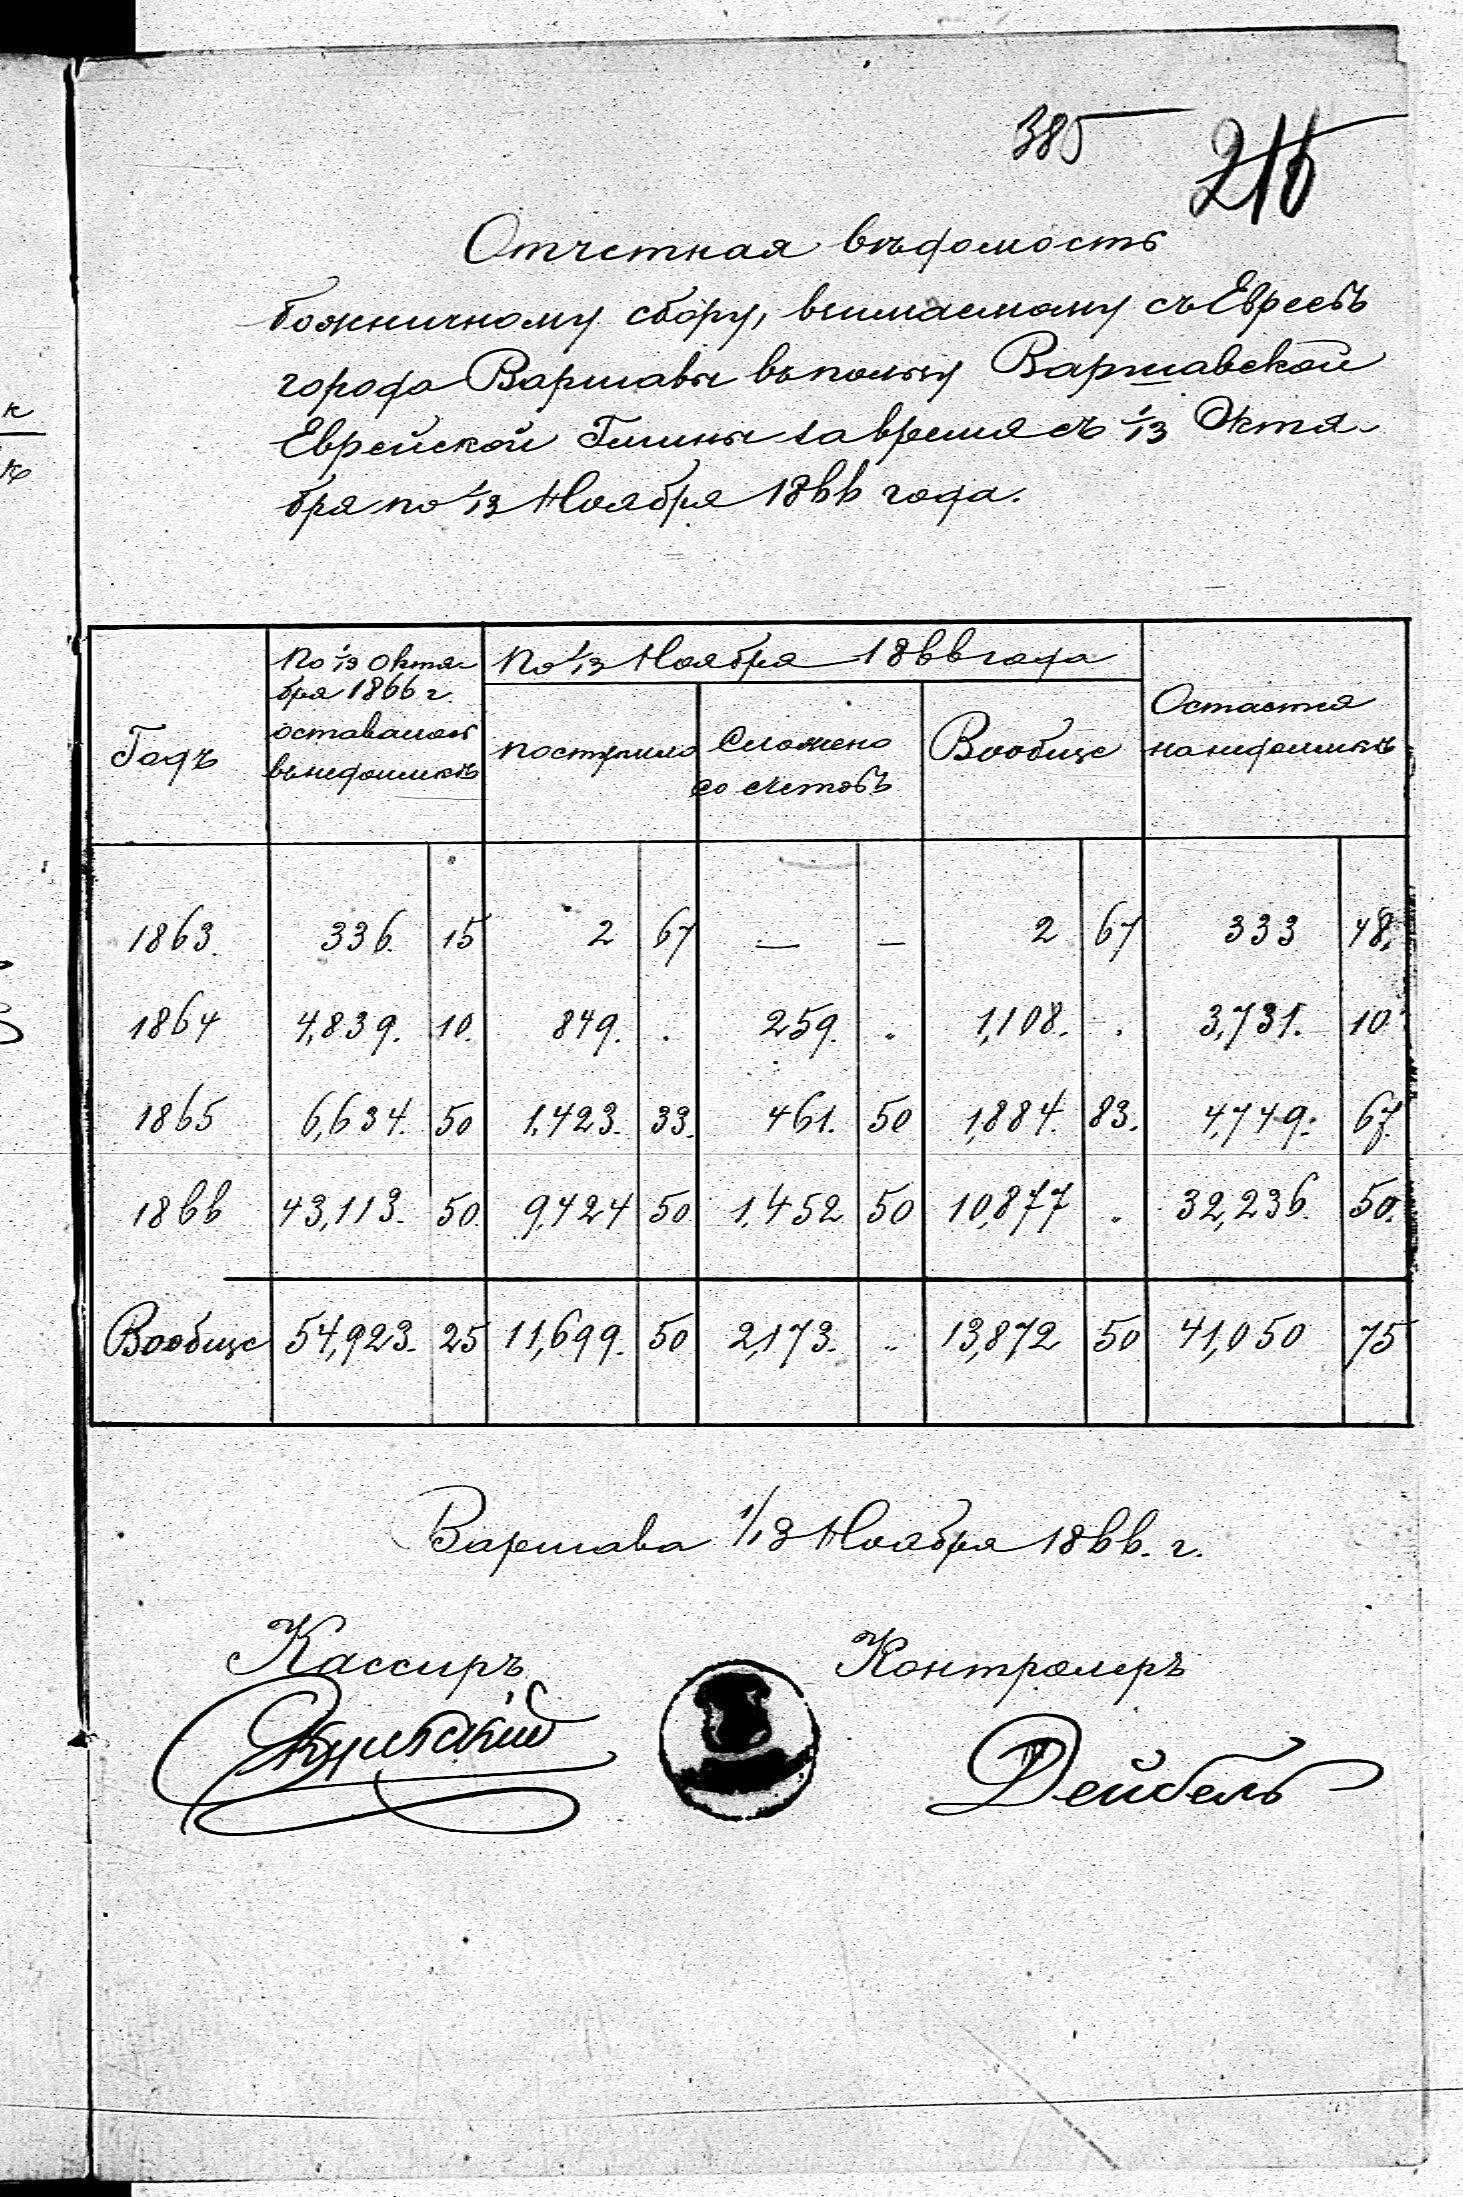 385
216
Отчетная вѣдомость
божничному сбору, взимаемому съ Евреевъ
города Варшавы въ пользу Варшавской
Еврейской Гмины за время съ 1/13 Октя-
бря по 1/13 Ноября 1866 года.
Годъ
По 1/13 Октя-
бря 1866 г.
оставалось
въ недоимкѣ
По 1/13 Ноября 1866 года
поступило
Сложено
со счетовъ
Вообще
Остается
на недоимкѣ
1863. 336. 15 2 67 — — 2 67 333 48.
1864 4,839. 10. 849. . 259. .. 1,108. . 3,731. 10
1865 6,634. 50 1,423. 33. 461. 50 1,884. 83. 4,749. 67.
1866 43,113. 50. 9,424 50 1,452 50 10,877 . 32,236. 50.
Вообще 54,923. 25 11,699. 50 2,173. .. 13,872 50 41,050 75
Варшава 1/13 Ноября 1866. г.
Кассиръ
Контролеръ
Дейбель